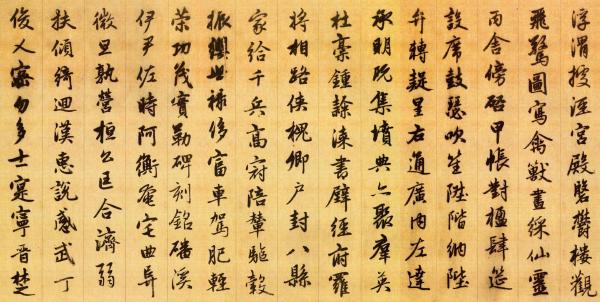 浮渭據涇宮殿盤鬱樓觀
飛驚圖寫禽獸畫綵仙靈
丙舍傍啓甲帳對楹肆筵
設席鼓瑟吹笙陞階納陛
弁轉疑星右通廣內左達
承明既集墳典亦聚羣英
杜稾鍾隸漆書壁經府羅
將相路俠槐卿戶封八縣
家給千兵高冠陪輦驅轂
振纓世祿侈富車駕肥輕
策功茂實勒碑刻銘磻溪
伊尹佐時阿衡奄宅曲阜
微旦孰營桓公匡合濟弱
扶傾綺迴漢惠說感武丁
俊乂密勿多士寔寧晉楚